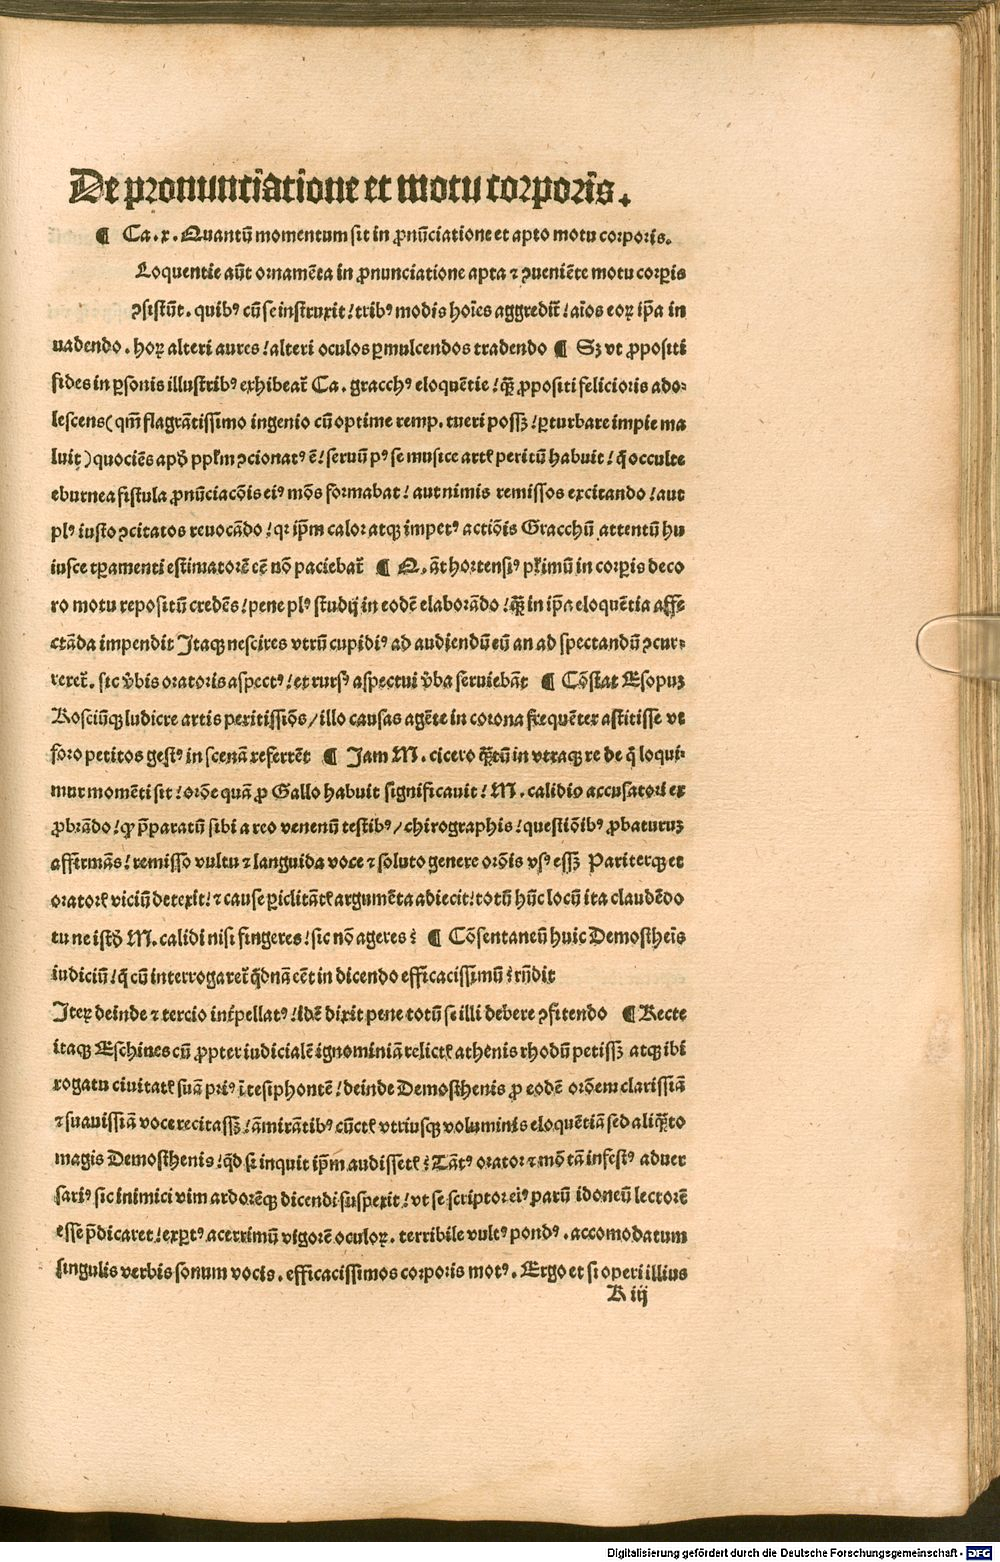 De pronunciatione et motu corporis.
¶ Ca. x. Quantū momentum sit in ꝓnūciatione et apto motu corporis.
Loquentie aūt ornamēta in ꝓnunciatione apta ⁊ ꝯueniēte motu corꝑis
ꝯsistūt. quibꝰ cū se instruxit / tribꝰ modis hoīes aggredit̄ / aīos eoꝝ ip̄a in
uadendo. hoꝝ alteri aures / alteri oculos ꝑmulcendos tradendo ¶ Sꝫ vt ꝓpositi
fides in ꝑsonis illustribꝰ exhibeat̄ Ca. gracchꝰ eloquētie / qͣꝫ ꝓpositi felicioris ado-
lescens (qm̄ flagrātissimo ingenio cū optime remp. tueri possꝫ / ꝑturbare impie ma
luit) quociēs apd̄ ppl̄m ꝯcionatꝰ ē / seruū pꝰ se musice artꝭ peritū habuit / q̄ occulte
eburnea fistula ꝓnūciacōis eiꝰ mōs formabat / aut nimis remissos excitando / aut
plꝰ iusto ꝯcitatos reuocādo / qꝛ ip̄m calor atqꝫ impetꝰ actiōis Gracchū attentū hu
iusce tꝑamenti estimatorē eē nō paciebat̄ ¶ Q. āt hortensiꝰ pͥmū in corꝑis deco
ro motu repositū credēs / pene plꝰ studij in eodē elaborādo / qͣꝫ in ip̄a eloquētia affe
ctāda impendit Itaqꝫ nescires vtrū cupidiꝰ ad audiendū eū an ad spectandū ꝯcur-
reret̄. sic v̄bis oratoris aspectꝰ / et rursꝰ aspectui v̄ba seruiebāt ¶ Cōstat Esopuꝫ
Rosciūqꝫ ludicre artis peritissiōs / illo causas agēte in corona frequēter astitisse vt
foro petitos gestꝰ in scenā referrēt ¶ Jam M. cicero qͣꝫtū in vtraqꝫ re de q̄ loqui-
mur momēti sit / orōe quā ꝓ Gallo habuit significauit / M. calidio accusatori ex
ꝓbrādo / ꝙ p̄paratū sibi a reo venenū testibꝰ / chirographis / questiōibꝰ ꝓbaturuꝫ
affirmās / remisso vultu ⁊ languida voce ⁊ soluto genere orōis vsꝰ essꝫ Pariterqꝫ et
oratorꝭ viciū detexit / ⁊ cause ꝑiclitātꝭ argumēta adiecit / totū hūc locū ita claudēdo
tu ne istd̄ M. calidi nisi fingeres / sic nō ageres? ¶ Cōsentaneū huic Demostheīs
iudiciū / q̄ cū interrogaret̄ qd̄nā eēt in dicendo efficacissimū? rn̄dit
Iteꝝ deinde ⁊ tercio int̄pellatꝰ / idē dixit pene totū se illi debere ꝯfitendo ¶ Recte
itaqꝫ Eschines cū ꝓpter iudicialē ignominiā relictꝭ athenis rhodū petissꝫ atqꝫ ibi
rogatu ciuitatꝭ suā priꝰ ī tesiphontē / deinde Demosthenis ꝓ eodē orōem clarissiā
⁊ suauissiā voce recitassꝫ / āmirātibꝰ cūctꝭ vtriusqꝫ voluminis eloquētiā sed aliqͣꝫto
magis Demosthenis / qd̄ si inquit ip̄m audissetꝭ? Tātꝰ orator ⁊ mō tā infestꝰ aduer
sariꝰ sic inimici vim ardorēqꝫ dicendi suspexit / vt se scriptoꝝ eiꝰ parū idoneū lectorē
esse p̄dicaret / exꝑtꝰ acerrimū vigorē oculoꝝ. terribile vultꝰ pondꝰ. accomodatum
singulis verbis sonum vocis. efficacissimos corporis motꝰ. Ergo et si operi illius
K iij
Digitalisierung gefördert durch die Deutsche Forschungsgemeinschaft - DFG